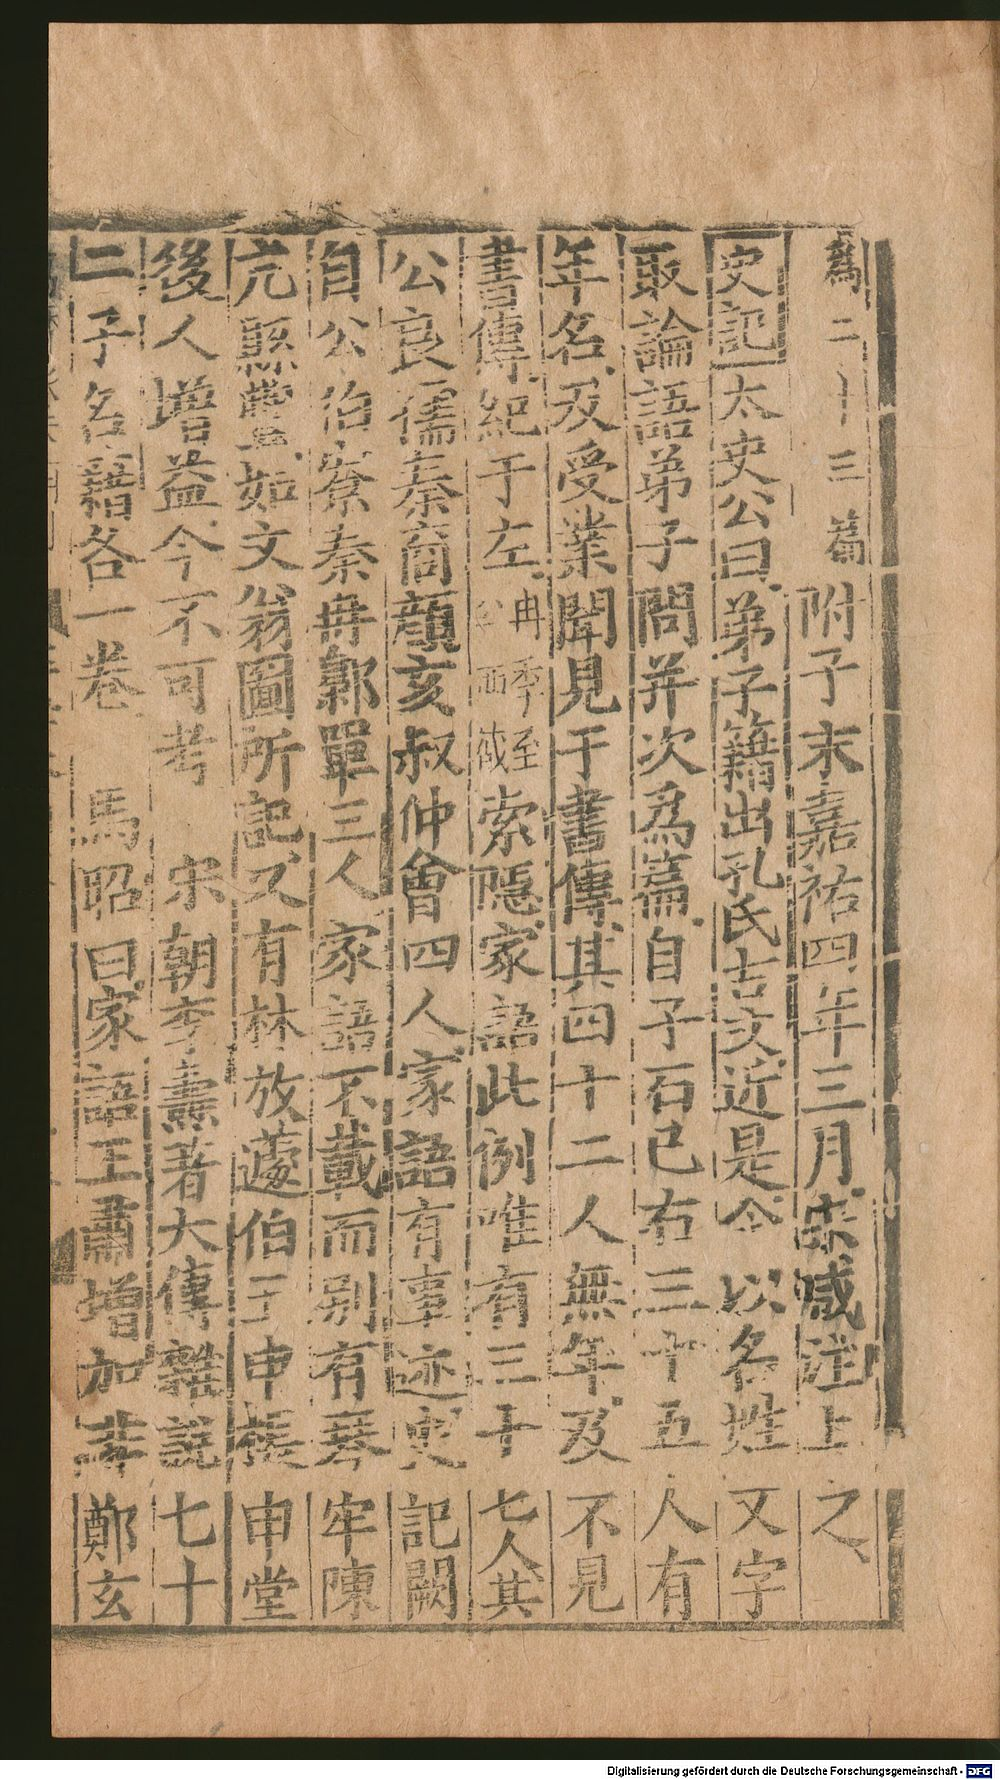 為二十三篇附子末嘉祐四年三月宋咸注上之
史記太史公曰弟子籍出孔氏古文近是今以名姓文字
取論語弟子問并次為篇自子石已右三十五人有
年名及受業聞見于書傳其四十二人無年及不見
書傳紀于左冉季至公西蒧索隱家語此例唯有三十七人其
公良孺秦商顏亥叔仲會四人家語有事迹史記闕
自公伯寮秦冉鄡單三人家語不載而別有琴牢陳
亢縣亶如文翁圖所記又有林放蘧伯玉申棖申堂
後人增益今不可考 宋朝李燾著大傳雜說七十
二子名籍各一卷 馬昭曰家語王肅增加非鄭玄
Digitalisierung gefördert durch die Deutsche Forschungsgemeinschaft - DFG